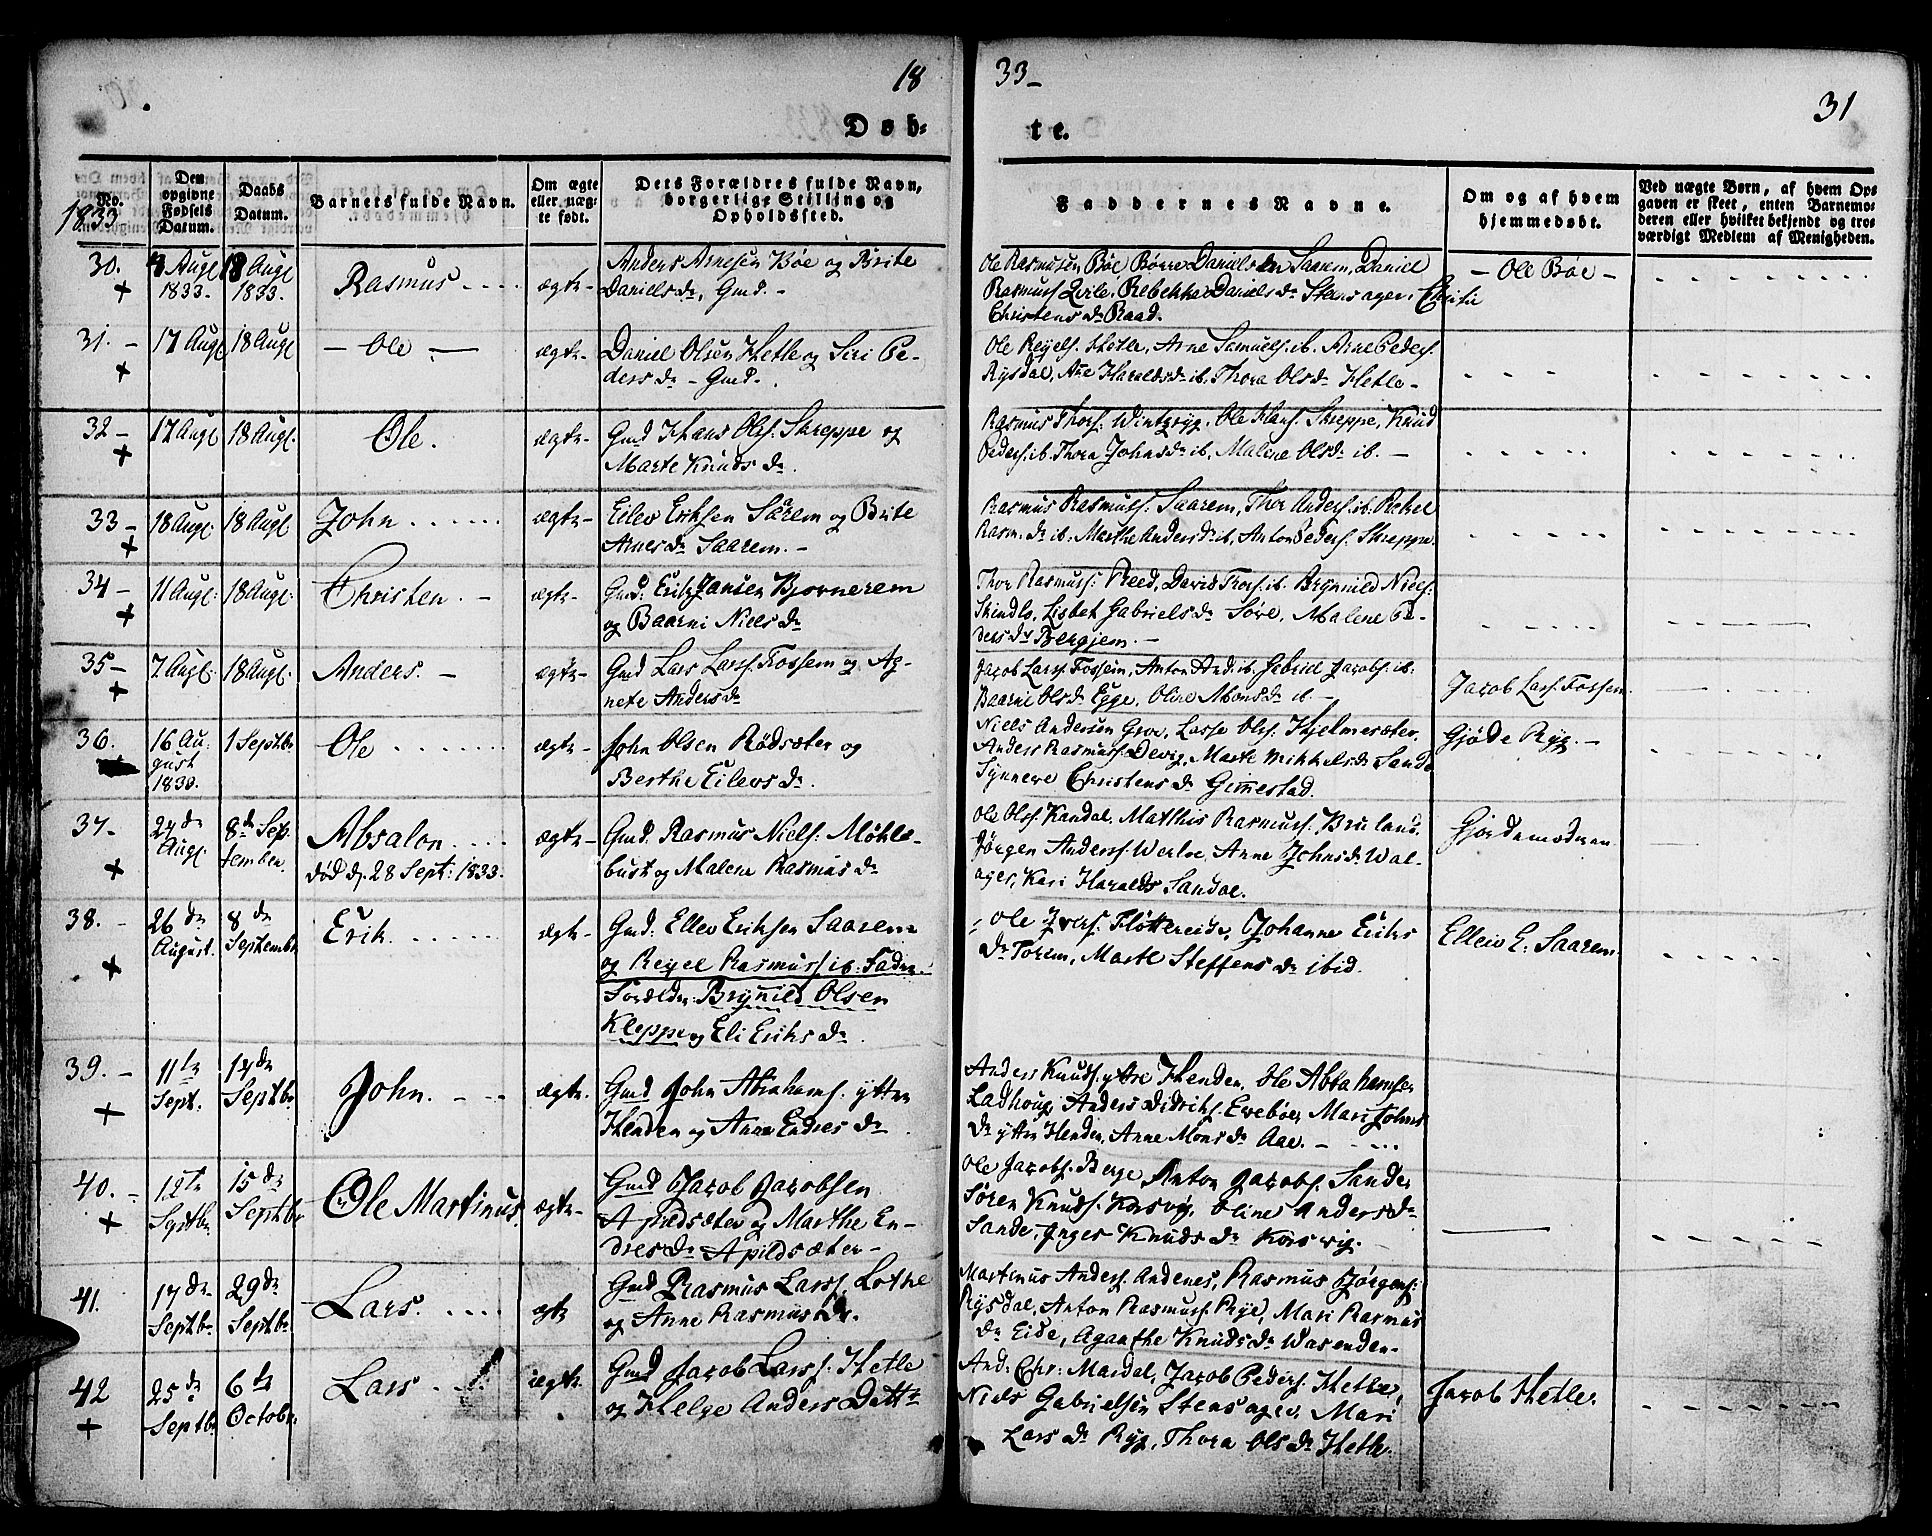 18
33_
31
Døb-
te.
1833
No.
Den opgivne Fødsels Datum.
Daabs Datum.
Barnets fulde Navn.
Om ægte eller uæg- te født.
Dets Forældres fulde Navn, borgerlige Stilling og Opholdssted.
Faddernes Navne.
Om og af hvem hjemmedøbt.
Ved uægte Børn, af hvem Op- gaven er skeet, enten Barnemo- deren eller hvilket bekjendt og tro- værdigt Medlem af Menigheden.
30. Augl 1833. 18 Augl 1833. Rasmus ægte-
Anders Arnesen Bøe og Brite
Danielsdr, Gmd. -
Ole Rasmusen Bøe Børre Danielsen Saarem, Daniel
Rasmusf Qvile, Rebekka Danielsdr Stensager, Christi
Christensdr Raad.
- Ole Bøe -
31. - 17 Augl 18 Augl - Ole - ægte-
Daniel Olsen Hetle og Siri Pe-
dersdr - Gmd.
Ole Reyelf. Hetle, Arne Samuelf. ib. Arne Pedersf.
Rysdal, Ane Haraldsdr ib. Thora Olsdr Hetle-
32 - 17 Augl 18 Augl. Ole. ægte-
Gmd Hans Olsf. Skreppe og
Marte Knudsdr.
Rasmus Thorsf: Ole Hansf. Skreppe, Knud
Pedersf. ib. Thora Johnsdr ib. Malene Olsdr ib. -
33 - 18 Augl. 18 Augl. John ægte-
Eilev Eriksen Sårem og Brite
Arnesdr Saarem. -
Rasmus Rasmusf. Saarem, Thor Andersf. ib. Rakel
Rasm.dr ib. Marthe Andersdr ib, Anton Pedersf. Skreppe.
34 - 11 Augl. 18 Augl. Christen. - ægte-
Gmd: Erik Jansen Bjørnerem
og Baarni Nielsdr
Thor Rasmusf: Reed, David Thorsf. ib. Brynnild Nielsf:
Skindlo, Lisbet Gabrielsdr Søre, Malene Pe-
dersdr Bergjem. -
35 - 7 Augl. 18 Augl. Anders. - ægte-
Gmd Lars Larsf. Fossem og Ag-
nete Andersdr
Jacob Larsf. Fossem, Anton And. ib. Gabriel Jacobf. ib.
Baarni Olsdr Egge, Oline Monsdr ib -
Jacob Larsf. Fossem.
36. 16 Au- gust 1833. 1 Septbr Ole ægte-
John Olsen Rødsæter og
Berthe Eilevsdr.
Niels Andersen Grov, Lasse Olsf. Hjelmesæter,
Anders Rasmusf. Devig, Marte Mikkelsdr Sande
Synneve Christensdr Gimmestad.
Gjøde Ryg. -
37. 27de Augl. 8de Sep- tember. Absalon ægte-
død d. 28 Sept: 1833.
Gmd. Rasmus Nielsf. Møkle-
bust og Malene Rasmusdr
Ole Olsf Kandal, Matthis Rasmusf. Bruland,
Jørgen Andersf. Anne Johnsdr Wal-
ager, Kari Haralds Sandal.
Gjordemodren
38. - 26de August. 8de September Erik ægte-
Gmd: Ellev Eriksen Saarem
og Reyel Rasmusf ib. Fadr.
Forælder: Brynild Olsen
Kleppe og Eli Eriksdr
Ole Iversf. Fløttereide, Johanne Eriks
dr Torem, Marte Steffensdr ibid.
Elleiv E: Saarem
39. - 11te Sept. 14de Septbr John. ægte-
Gmd John Abrahamsf. yttre
Henden og Anne Endresdr
Anders Knudsf. yttre Henden, Ole Abrahamsen
Ladhoug, Anders Didriksf. Evebøe, Mari Johns
dr yttre Henden, Anne Monsdr Aae. -
40. - 12te Septbr 15de Septbr Ole Martinus ægte-
Gmd Jacob Jacobsen
Apildsæter og Marthe En-
dresdr Apildsæter -
Ole Jacobsf. Berge Anton Jacobsf. Sande
Søren Knudsf. Korsvig, Oline Andersdr
Sande, Inger Knudsdr Korsvig.
41. 17de Septbr 29de Septbr Lars. ægte
Gmd Rasmus Larsf. Lothe
og Anne Rasmusdr.
Martinus Andersf. Andenes, Rasmus Jørgensf:
Rysdal, Anton Rasmusf. Rye, Mari Rasmus
dr Eide, Agaathe Knudsdr Wasenden-
42 25de Septbr 6te Octobr. Lars ægte.
Gmd Jacob Larsf. Hetle
og Helge Anders Dattr
And: Chr: Mardal, Jacob Pedersf. Hetle,
Niels Gabrielsen Stensager, Mari
Larsdr Ryg, Thora Olsdr Hetle.
Jacob Hetle.